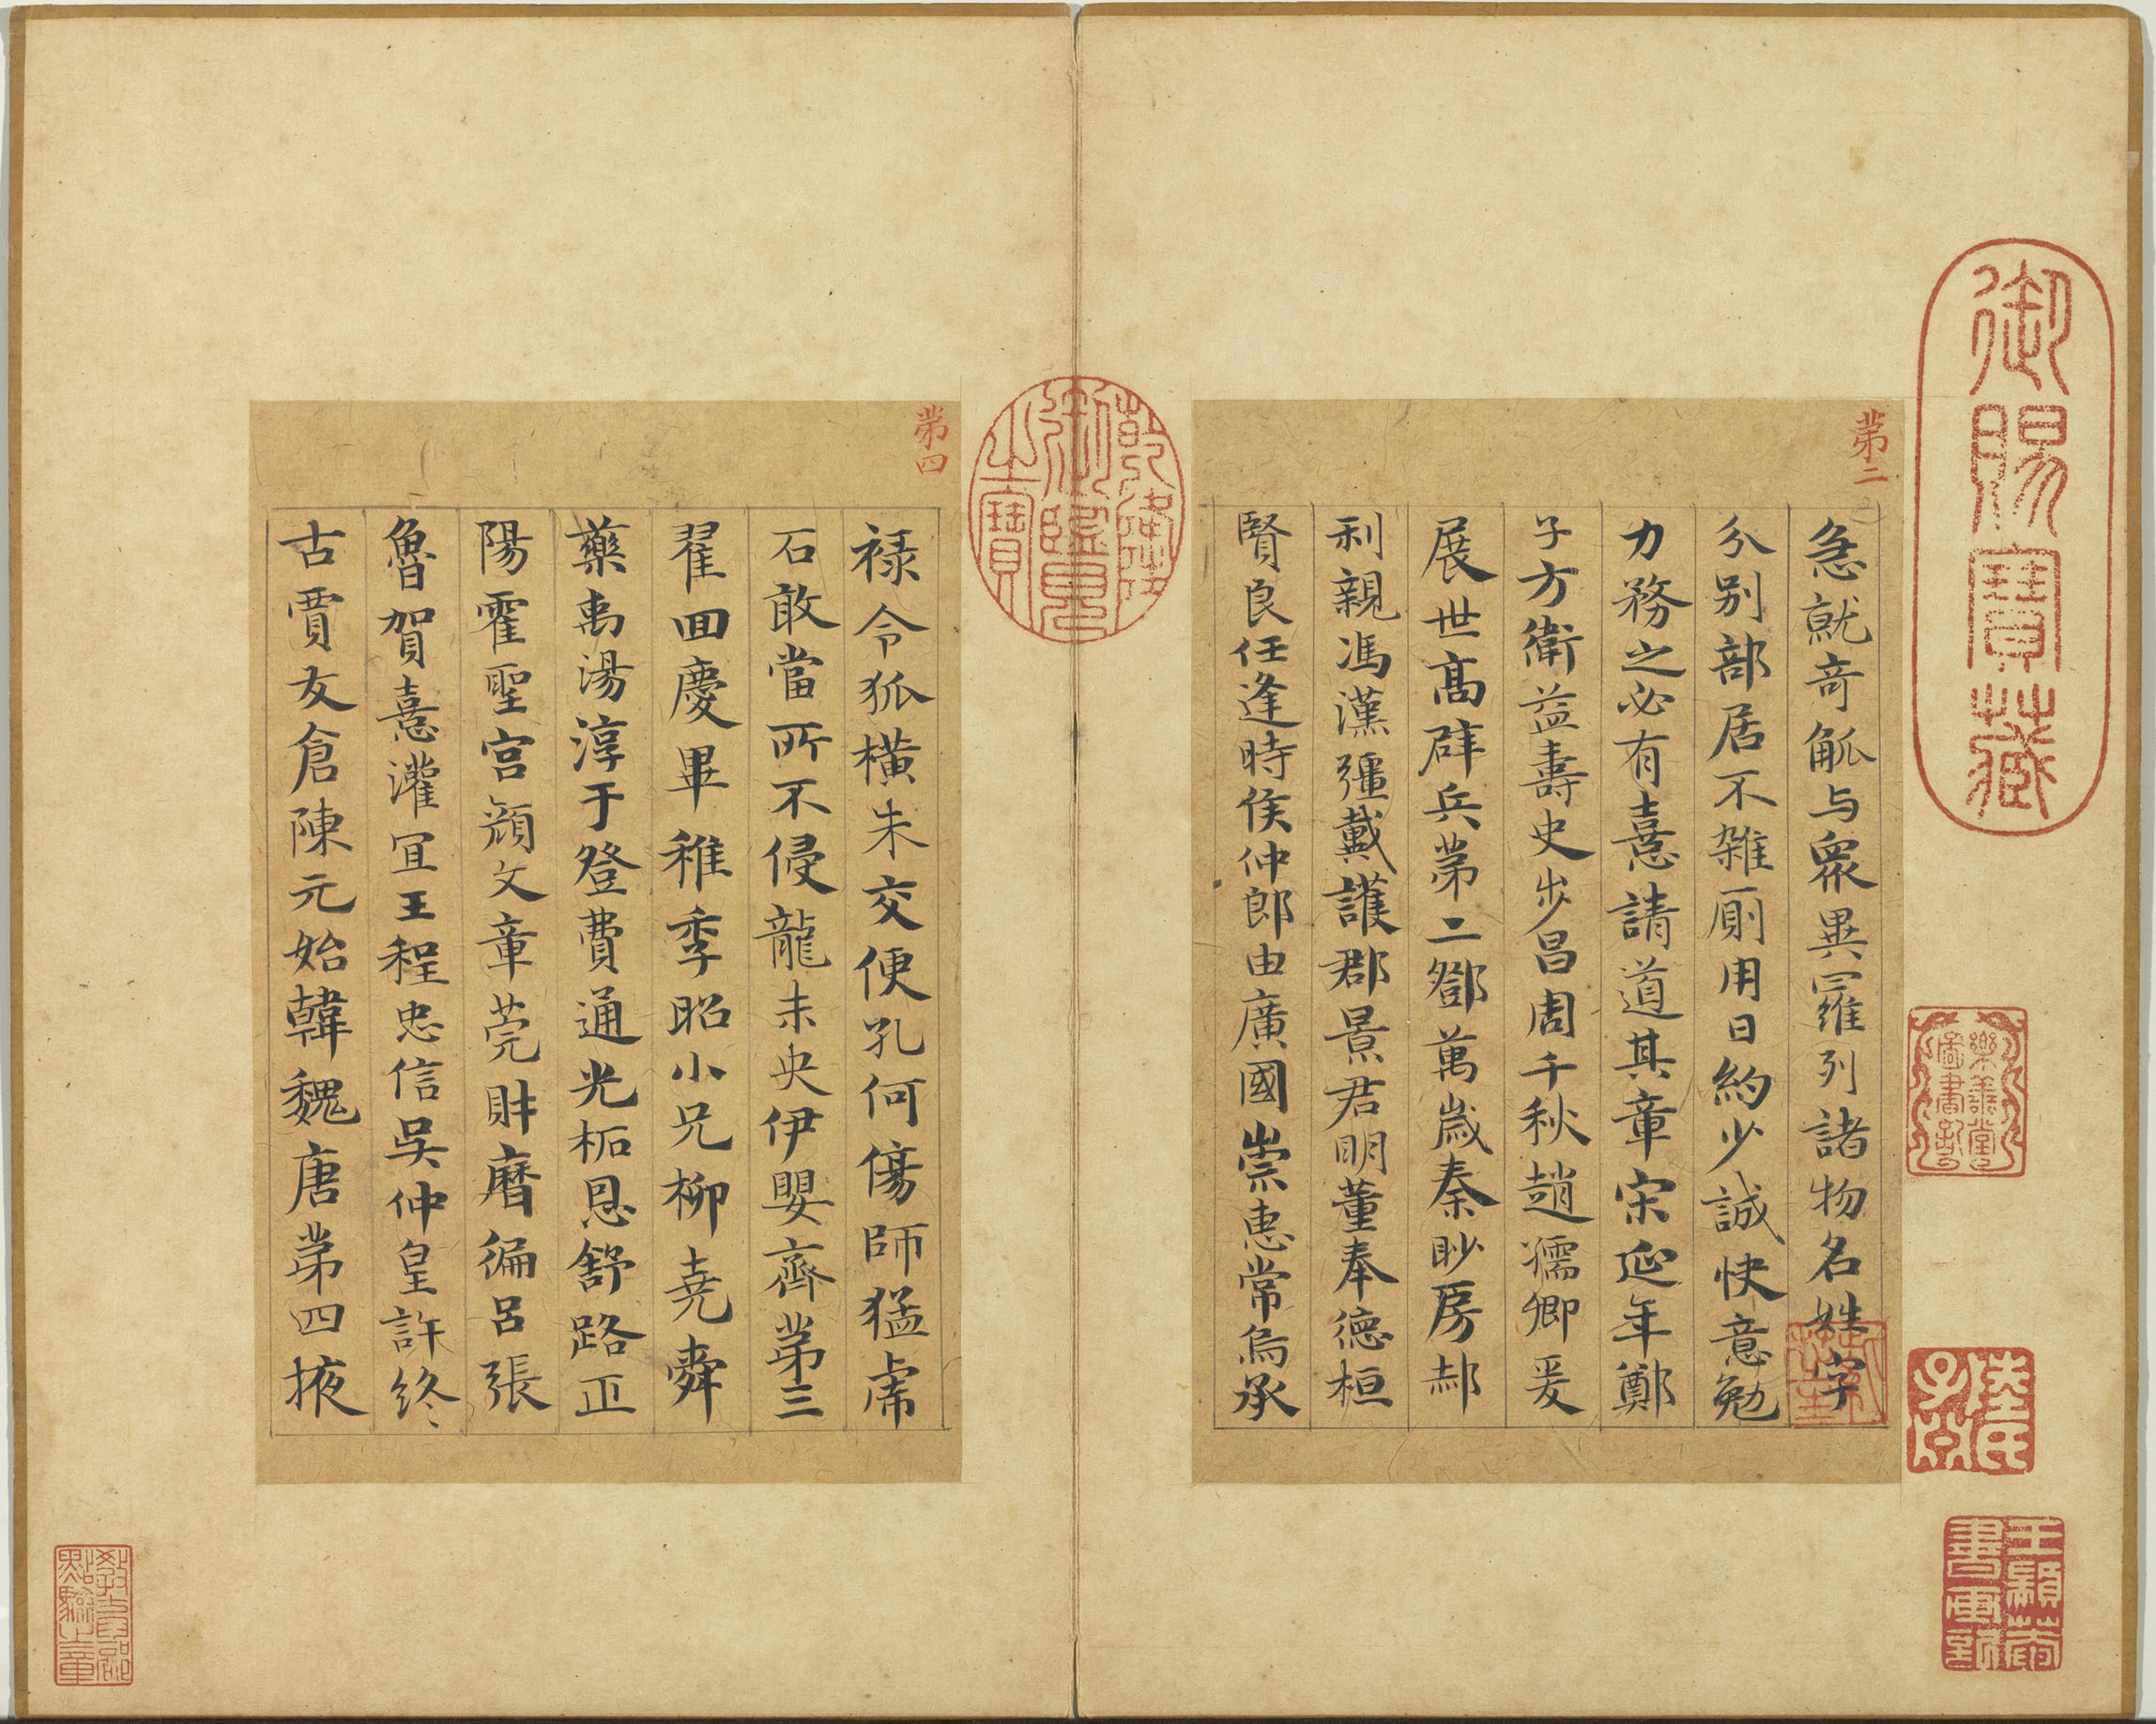 御賜寶藏
第二
急就奇觚与衆異羅列諸物名姓字
分别部居不雜廁用日約少誠快意勉
力務之必有憙請道其章宋延年鄭
子方衛益壽史步昌周千秋趙孺卿爰
展世高辟兵苐二鄧萬歲秦眇房郝
利親馮漢彊戴護郡景君明董奉德桓
賢良任逢時侯仲郎由廣國崇惠常烏承
乾隆
御覽
之寶
第四
禄令狐橫朱交便孔何傷師猛虎
石敢當所不侵龍未央伊嬰齊苐三
翟回慶畢稚季昭小兄柳堯舜
藥禹湯淳于登費通光柘恩舒路正
陽霍聖宮顔文章莞財曆徧呂張
魯賀憙灌冝王程忠信吳仲皇許終
古賈友倉陳元始韓魏唐苐四掖
樂善堂
圖書記
教育部
點驗之章